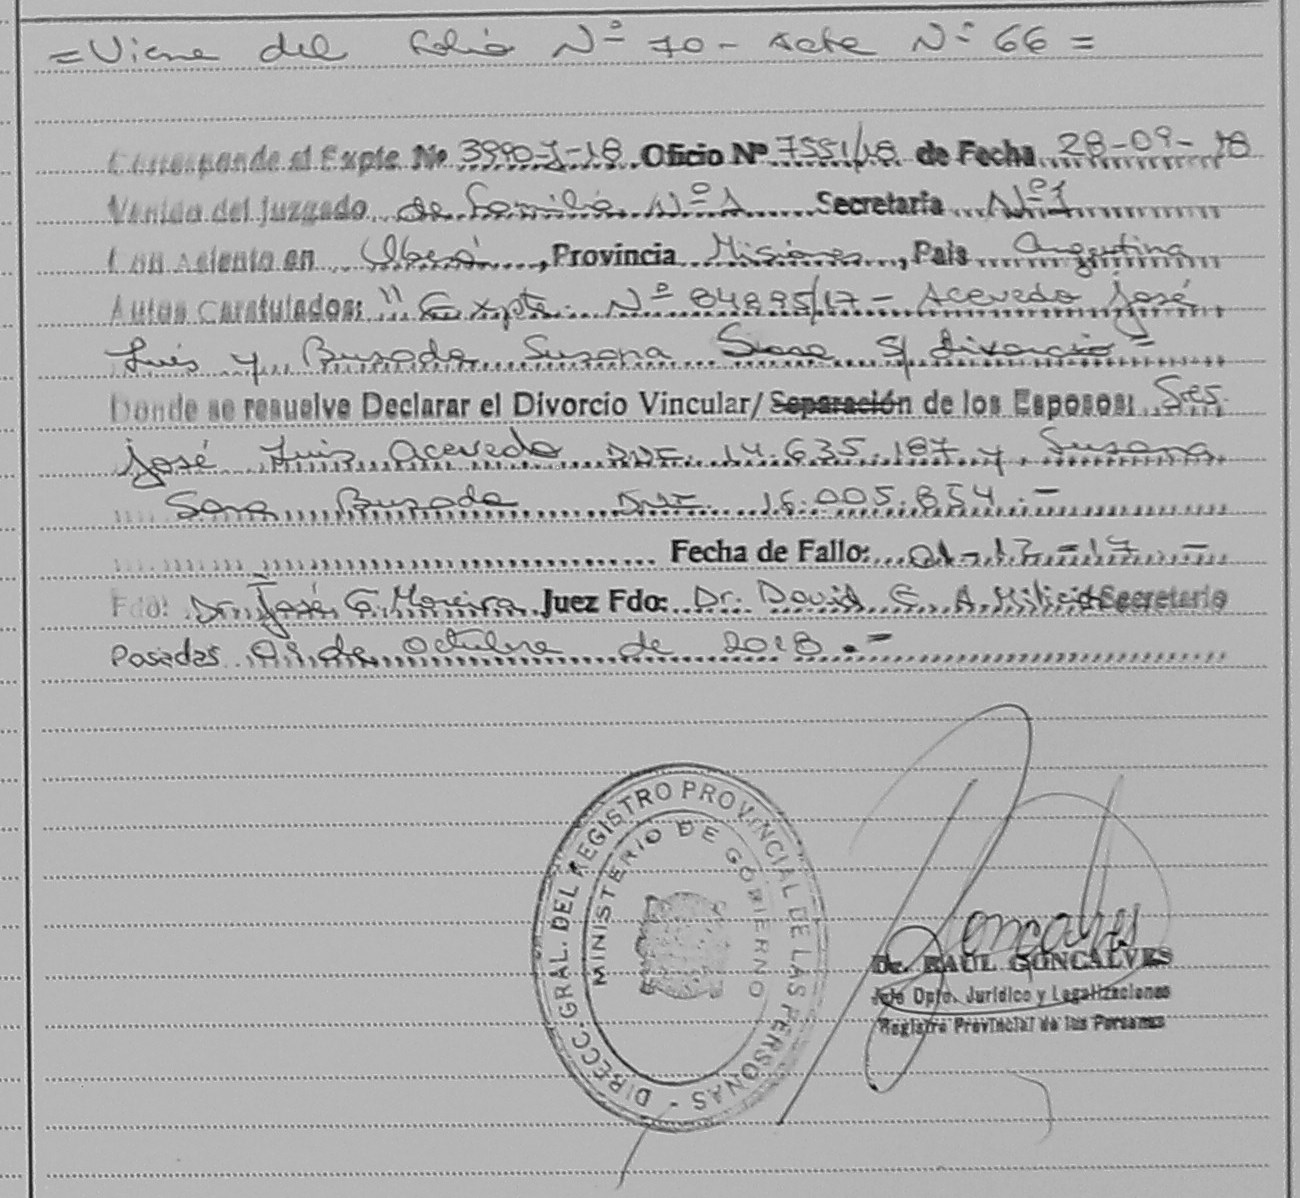 = Viene del folio Nº 70 - Acta Nº 66 =
Corresponde al Expte. Nº 3990-J-18 Oficio Nº 7551/18 de Fecha 28-09-18
Venido del Juzgado de Familia Nº 1 Secretaria Nº 1
Con Asiento en Oberá, Provincia Misiones, Pais Argentina
Autos Caratulados: "Expte. Nº 84895/17 - Acevedo José
Luis y Buzada Susana Sara S/ divorcio"
Donde se resuelve Declarar el Divorcio Vincular/ Separación de los Esposos: Sres
José Luis Acevedo DNI. 14.635.187 y Susana
Sara Buzada DNI. 16.005.854.-
Fecha de Fallo: 01-12-17 -
Fdo: Dr. José G. Moreira Juez Fdo: Dr. David E. A. Secretario
Posadas, de octubre de 2018.-
DIRECC. GRAL. DEL REGISTRO PROVINCIAL DE LAS PERSONAS -
MINISTERIO DE GOBIERNO
Goncalves
Dr. RAUL GONCALVES
Jefe Dpto. Jurídico y Legalizaciones
Registro Provincial de las Personas